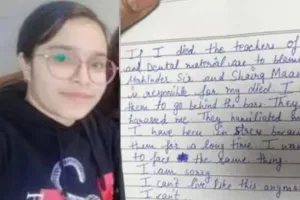 If I died the teachers of
and Dental material are to blame
Mahinder Sir and Shairg Maam
is responsible for my died I
them to go behind the bars They
harassed me They humiliated
I have been in stress because
them for a long time I want
to face the same thing
I am sorry
I can't live like this anymore
I can't